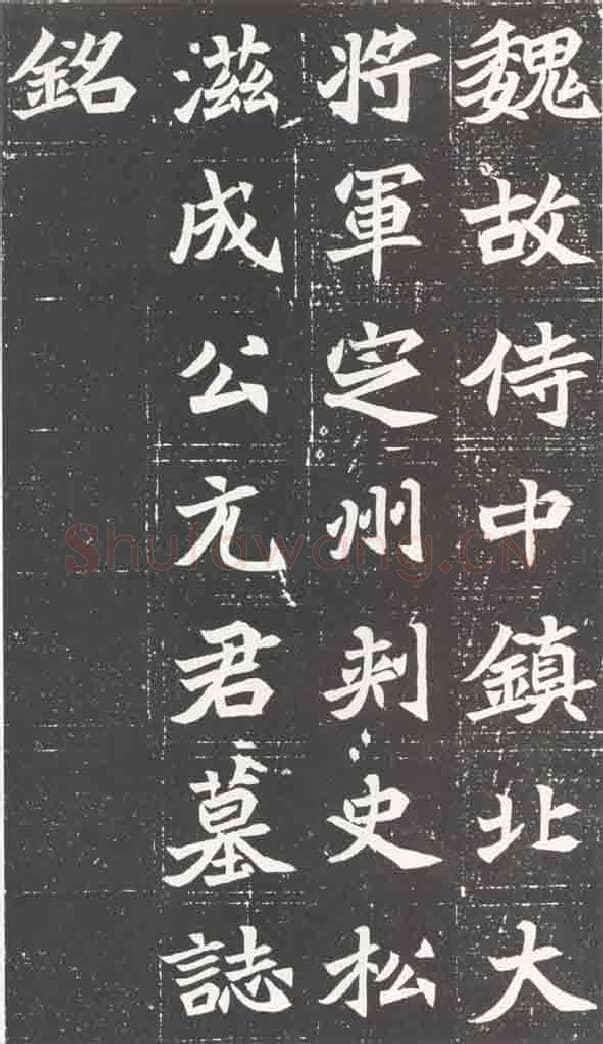 魏故侍中鎮北大
将軍定州刾史松
滋成公元君墓誌
銘
Shufawang.CN